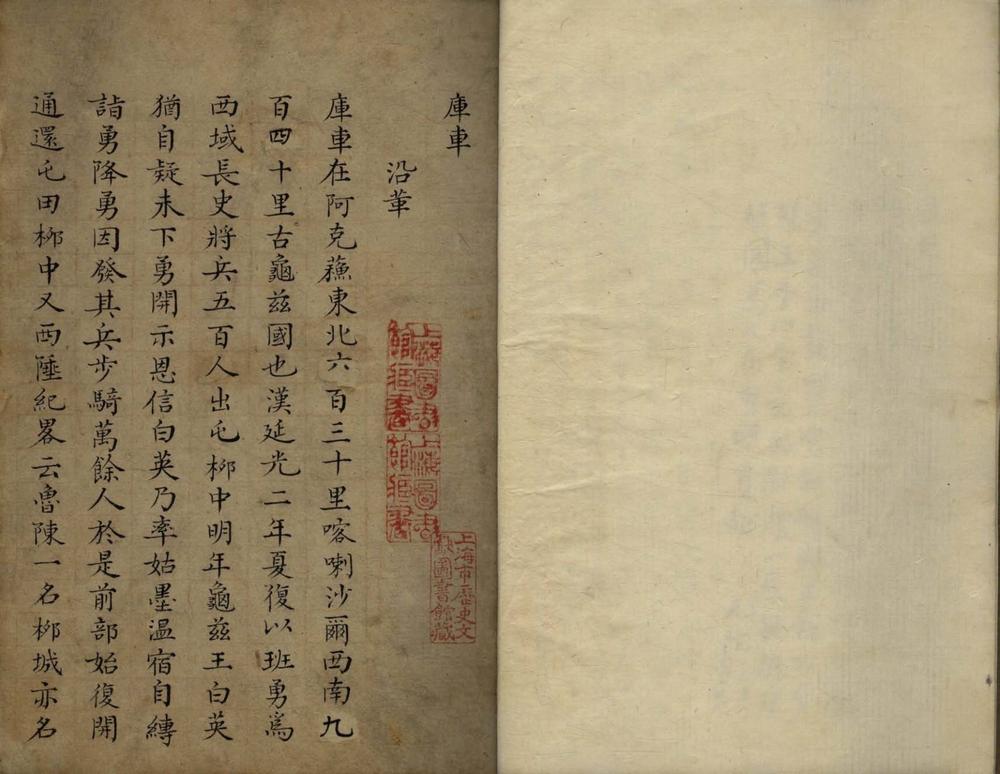 庫車
沿革
庫車在阿克蘓東北六百三十里喀喇沙爾西南九
百四十里古龜兹國也漢延光二年夏復以班勇爲
西域長史將兵五百人出屯桺中明年龜兹王白英
猶自疑未下勇開示恩信白英乃率姑墨温宿自縛
詣勇降勇因發其兵步騎萬餘人於是前部始復開
通還屯田桺中又西陲紀畧云魯陳一名桺城亦名
上海圖書
館藏書
上海圖書
館藏書
上海市歷史文
獻圖書館藏